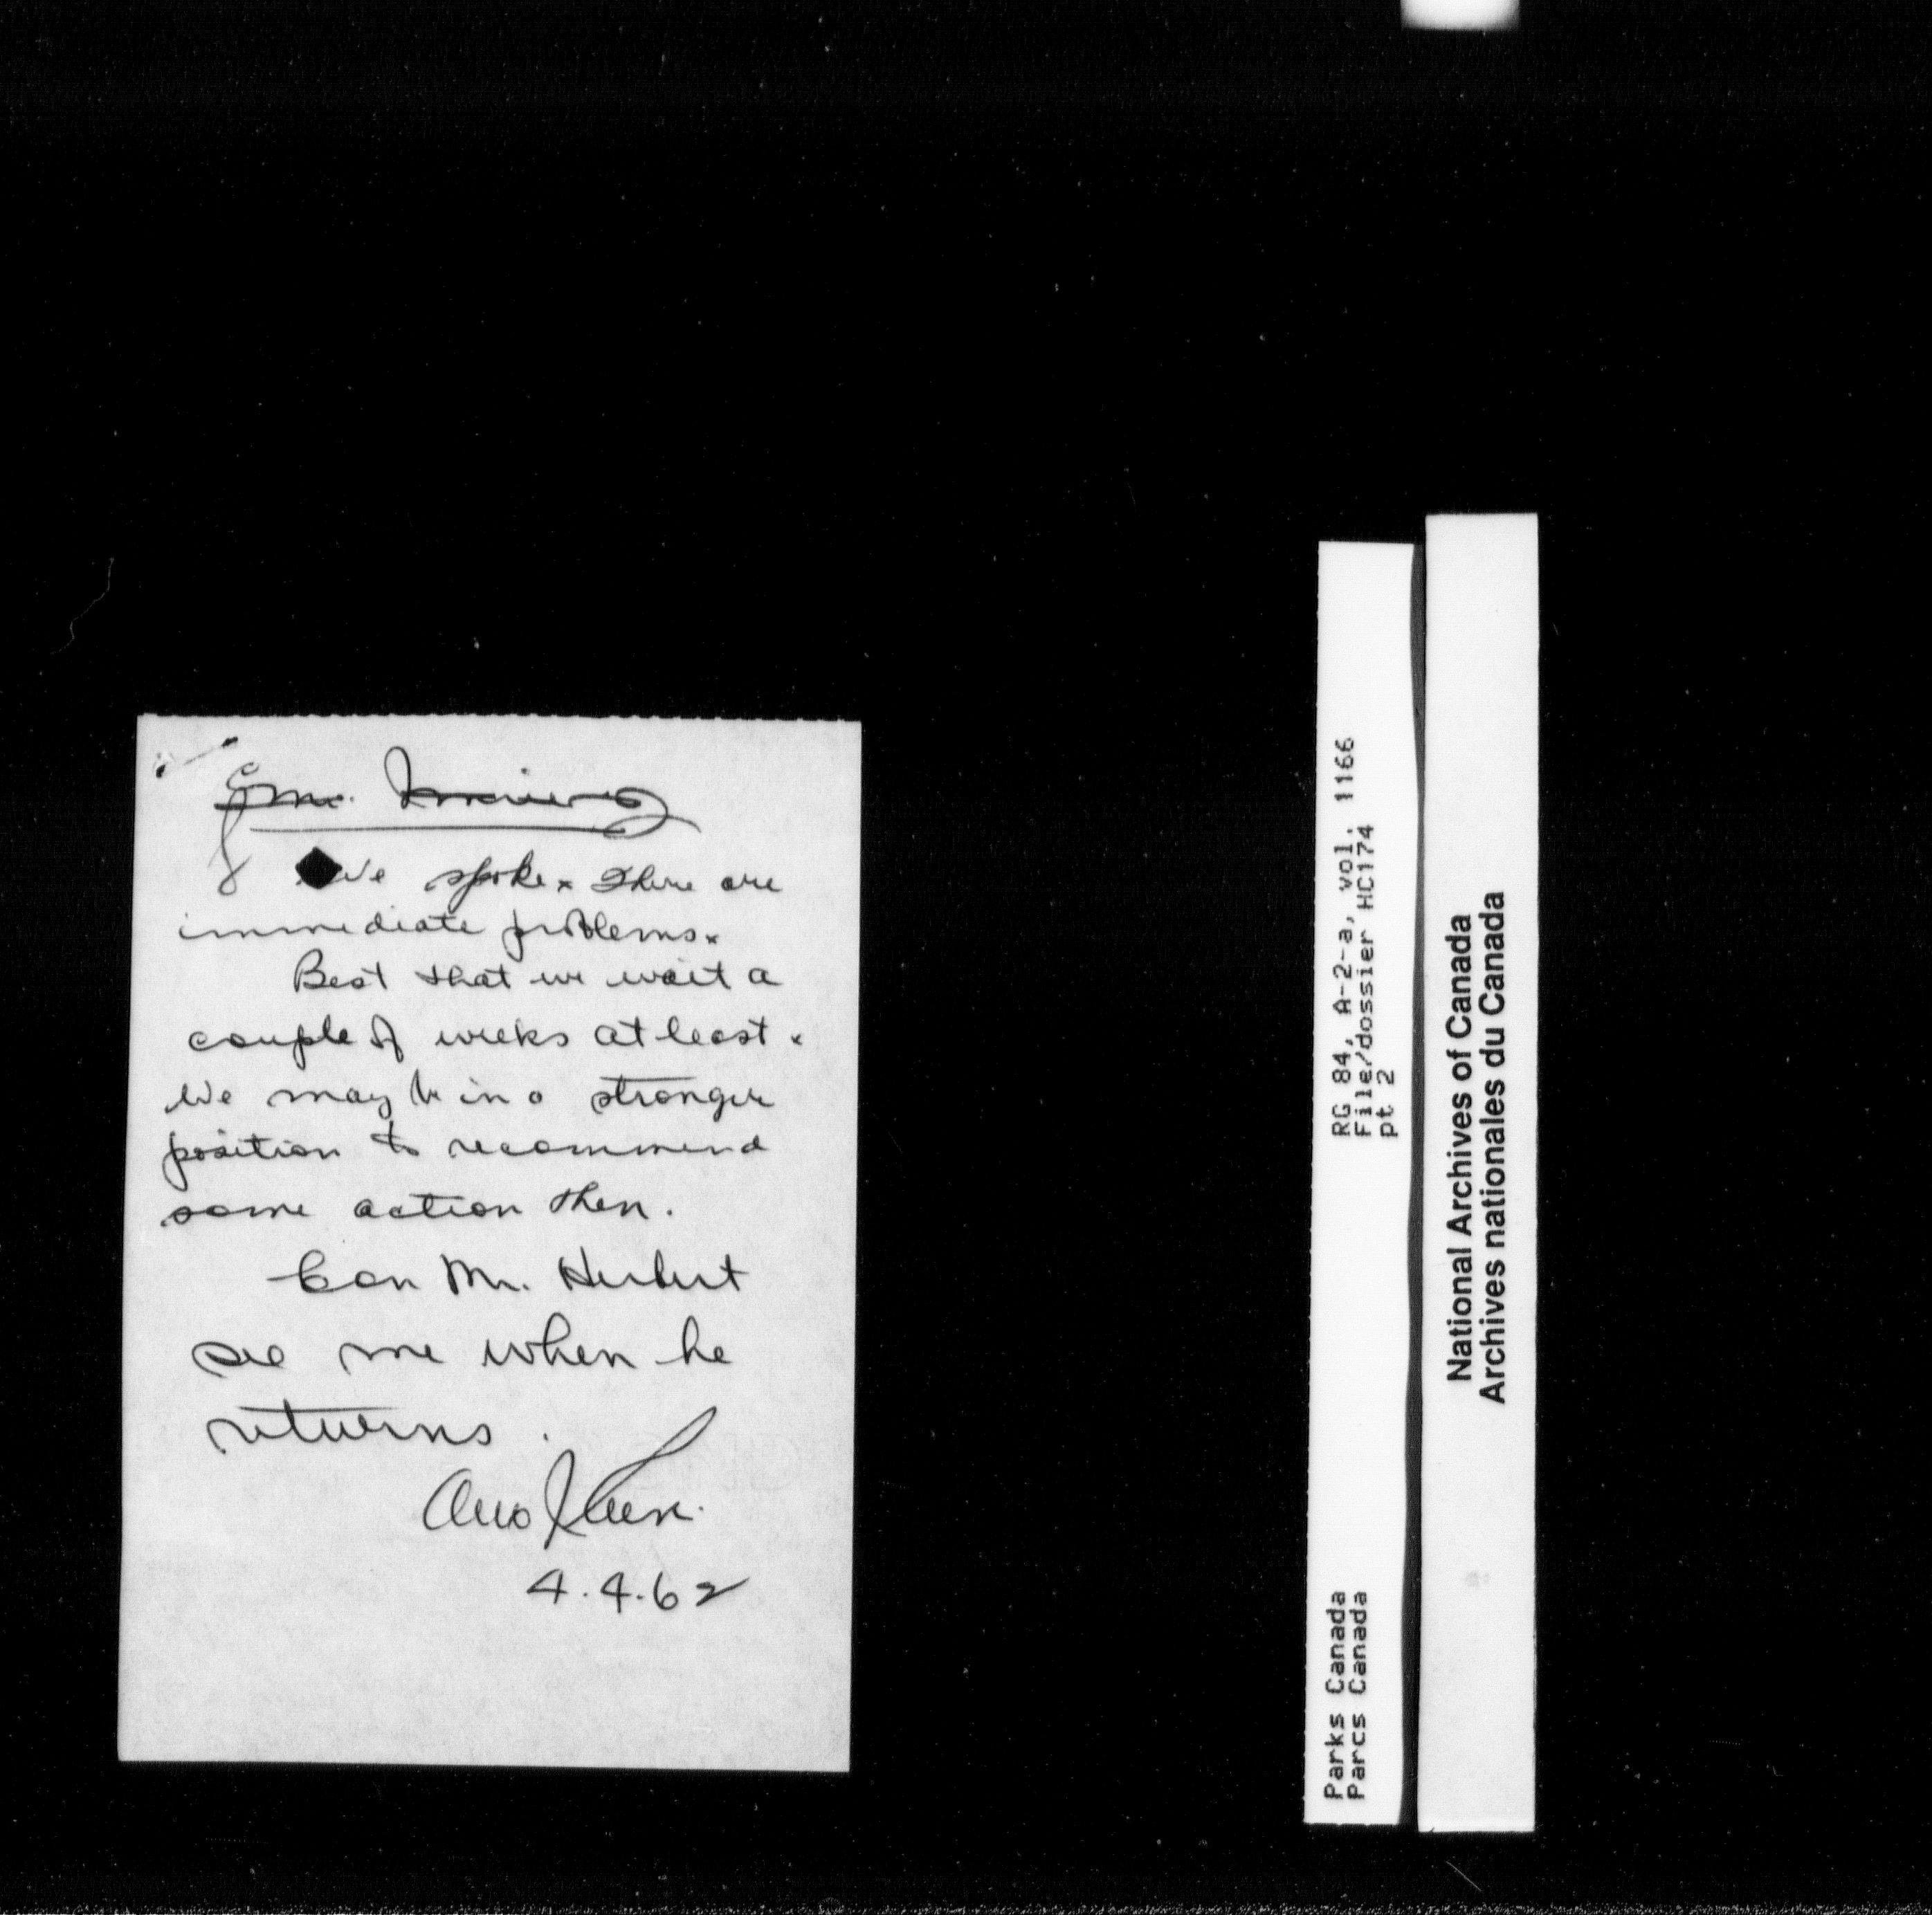 Mr.
We spoke. There are
immediate problems.
Best that we wait a
couple of weeks at least.
We may be in a stronger
position to recommend
some action then.
Can Mr. Herbert
see me when he
returns.
4.4.62
RG 84, A-2-a, vol. 1166
File/dossier HC174
pt 2
Parks Canada
Parcs Canada
National Archives of Canada
Archives nationales du Canada